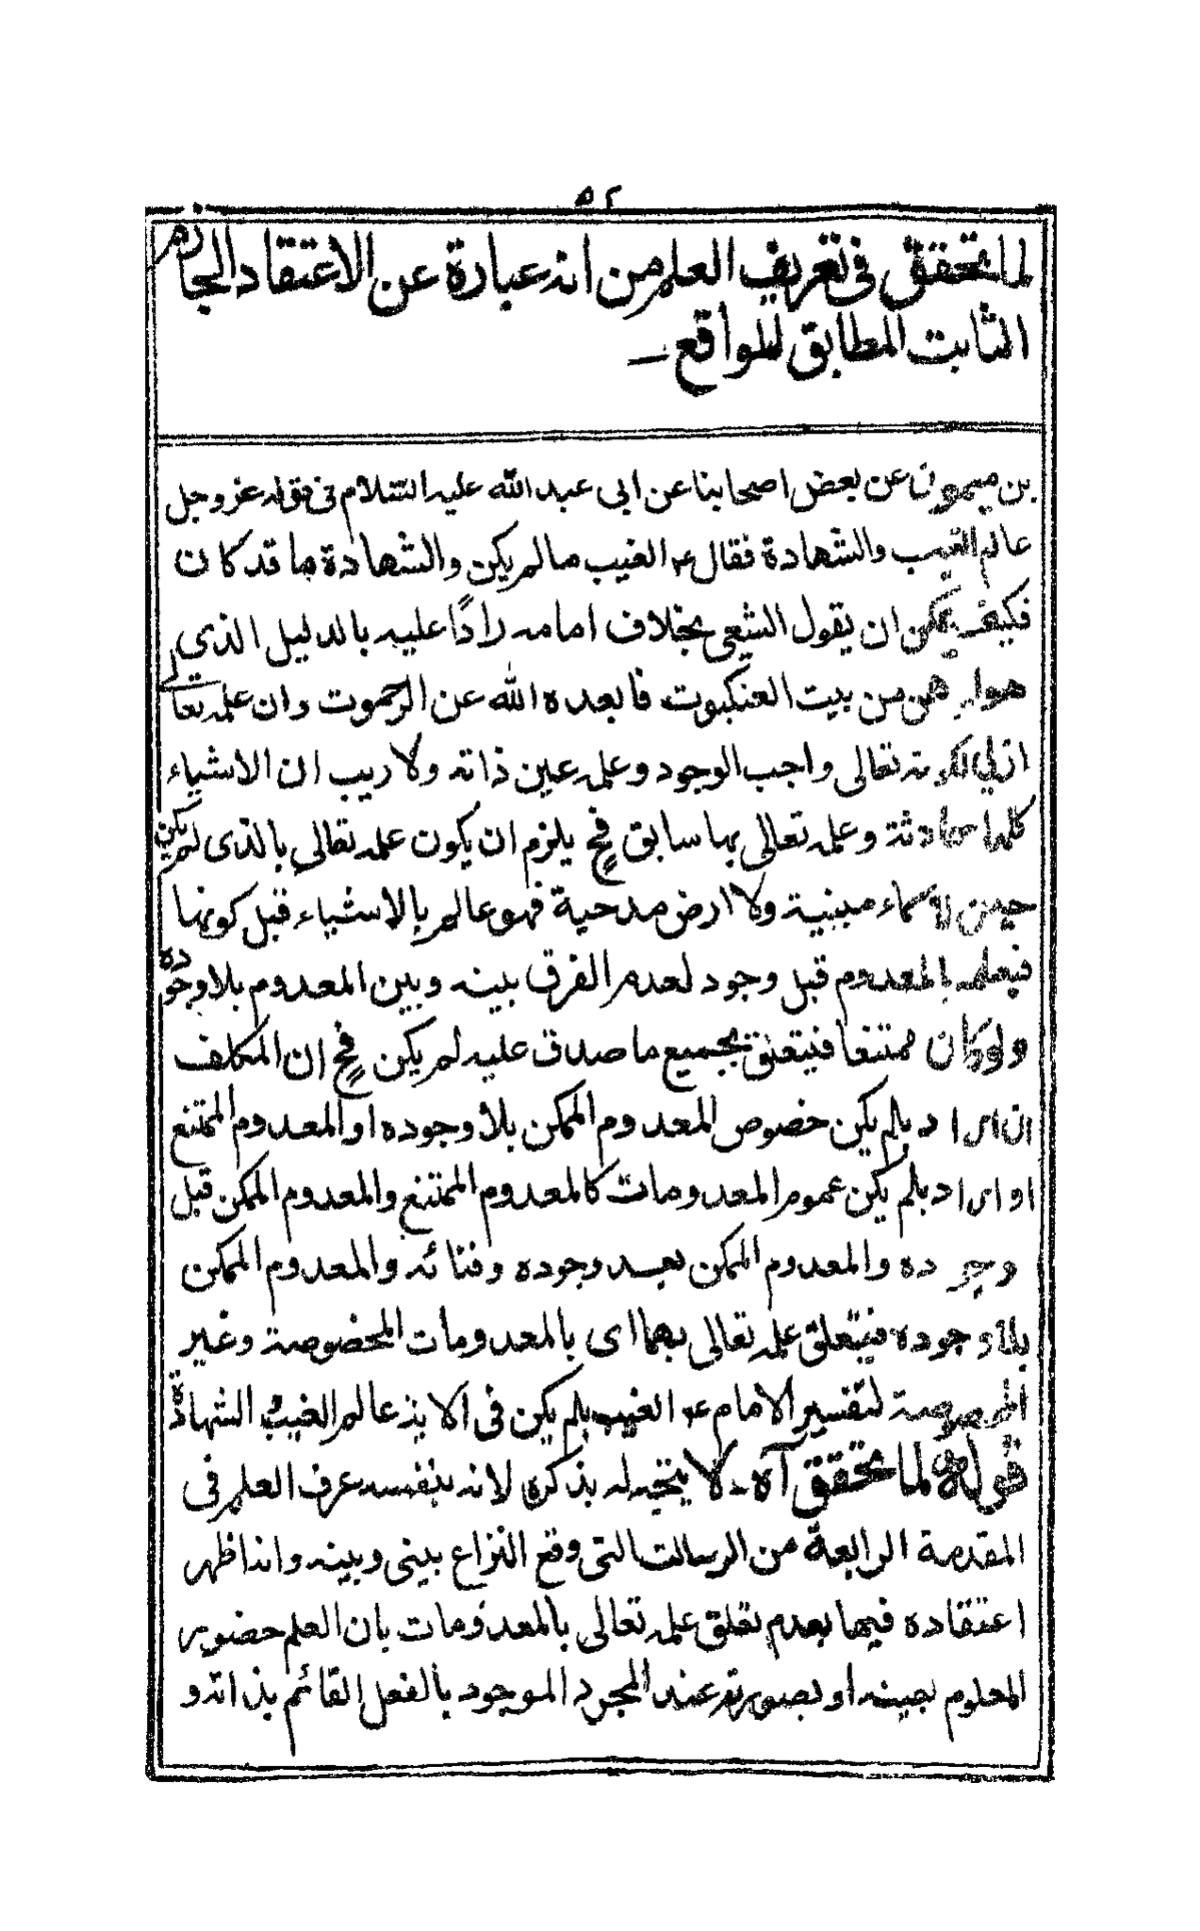 ٥٢
لما تحقق فى تعريف العلم من انه عبارة عن الاعتقاد الجازم
الثابت المطابق للواقع
بن ميمون عن بعض اصحابنا عن ابى عبد الله عليه السلام فى قوله عز وجل
عالم الغيب والشهادة فقال ع الغيب ما لم يكن والشهادة ما قد كان
فكيف يمكن ان يقول الشيعى بخلاف امامه رادًا عليه بالدليل الذى
هو اوهن من بيت العنكبوت فابعده الله عن الرحموت وان علمه تعالى
ازلي لكونه تعالى واجب الوجود وعلمه عين ذاته ولا ريب ان الاشياء
كلها حادثة وعلمه تعالى بها سابق فح يلزم ان يكون علمه تعالى بالذى لم يكن
حين لا سماء مبنية ولا ارض مدحية فهو عالم بالاشياء قبل كونها
فبعلمه بالمعدوم قبل وجود لعدم الفرق بينه وبين المعدوم بلا وجوده
ولو كان ممتنعا فيتعلق بجميع ما صدق عليه لم يكن فح ان المكلف
ان اراد بلم يكن خصوص المعدوم الممكن بلا وجوده او المعدوم الممتنع
او اراد بلم يكن عموم المعدومات كالمعدوم الممتنع والمعدوم الممكن قبل
وجوده والمعدوم الممكن بعد وجوده وفنائه والمعدوم الممكن
بلا وجوده فيتعلق علمه تعالى بهما اى بالمعدومات المخصوصة وغير
المخصوصة لتفسير الامام ع الغيب بلم يكن فى الاية عالم الغيب والشهادة
قوله لما تحقق آه لا يتجه له بذكره لانه بنفسه عرف العلم فى
المقدمة الرابعة من الرسالة التى وقع النزاع بينى وبينه وانه اظهر
اعتقاده فيها بعدم تعلق علمه تعالى بالمعدومات بان العلم حضور
المعلوم بعينه او بصورته عند المجرد الموجود بالفعل القائم بذاته و